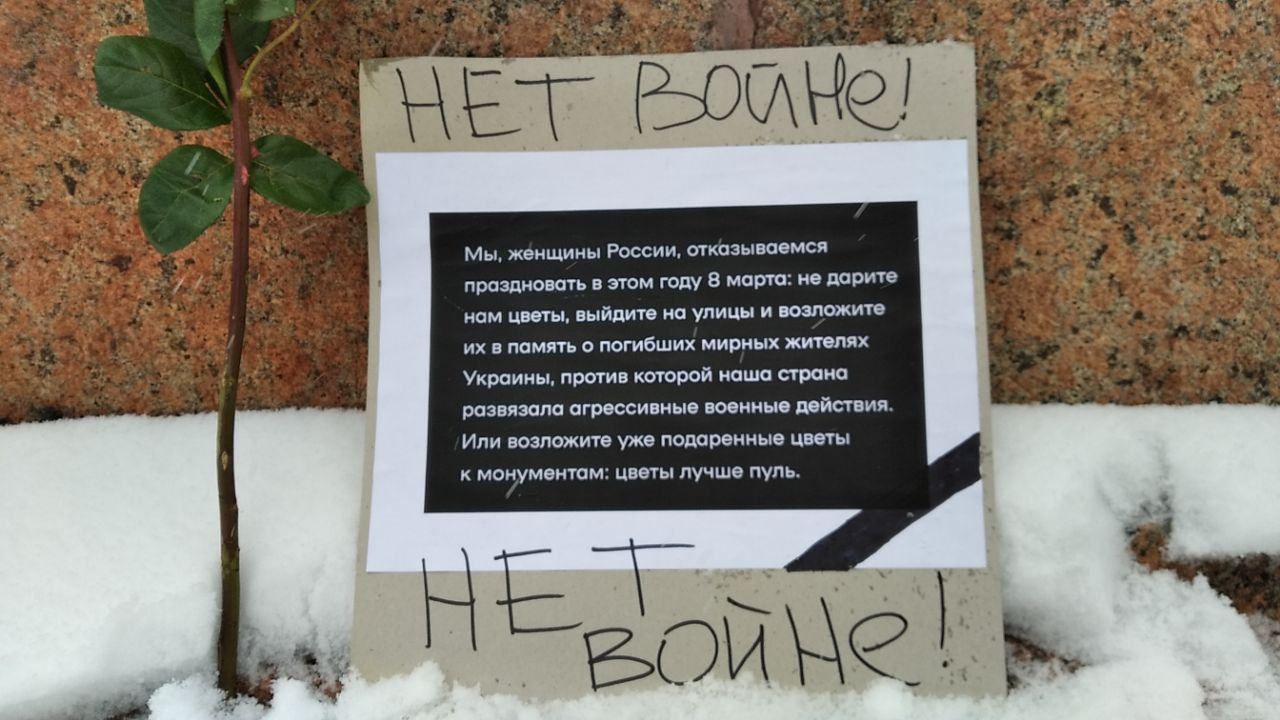 НЕТ ВОЙНе!
Мы, женщины России, отказываемся
праздновать в этом году 8 марта: не дарите
нам цветы, выйдите на улицы и возложите
их в память о погибших мирных жителях
Украины, против которой наша страна
развязала агрессивные военные действия.
Или возложите уже подаренные цветы
к монументам: цветы лучше пуль.
НЕТ
ВОЙНе!